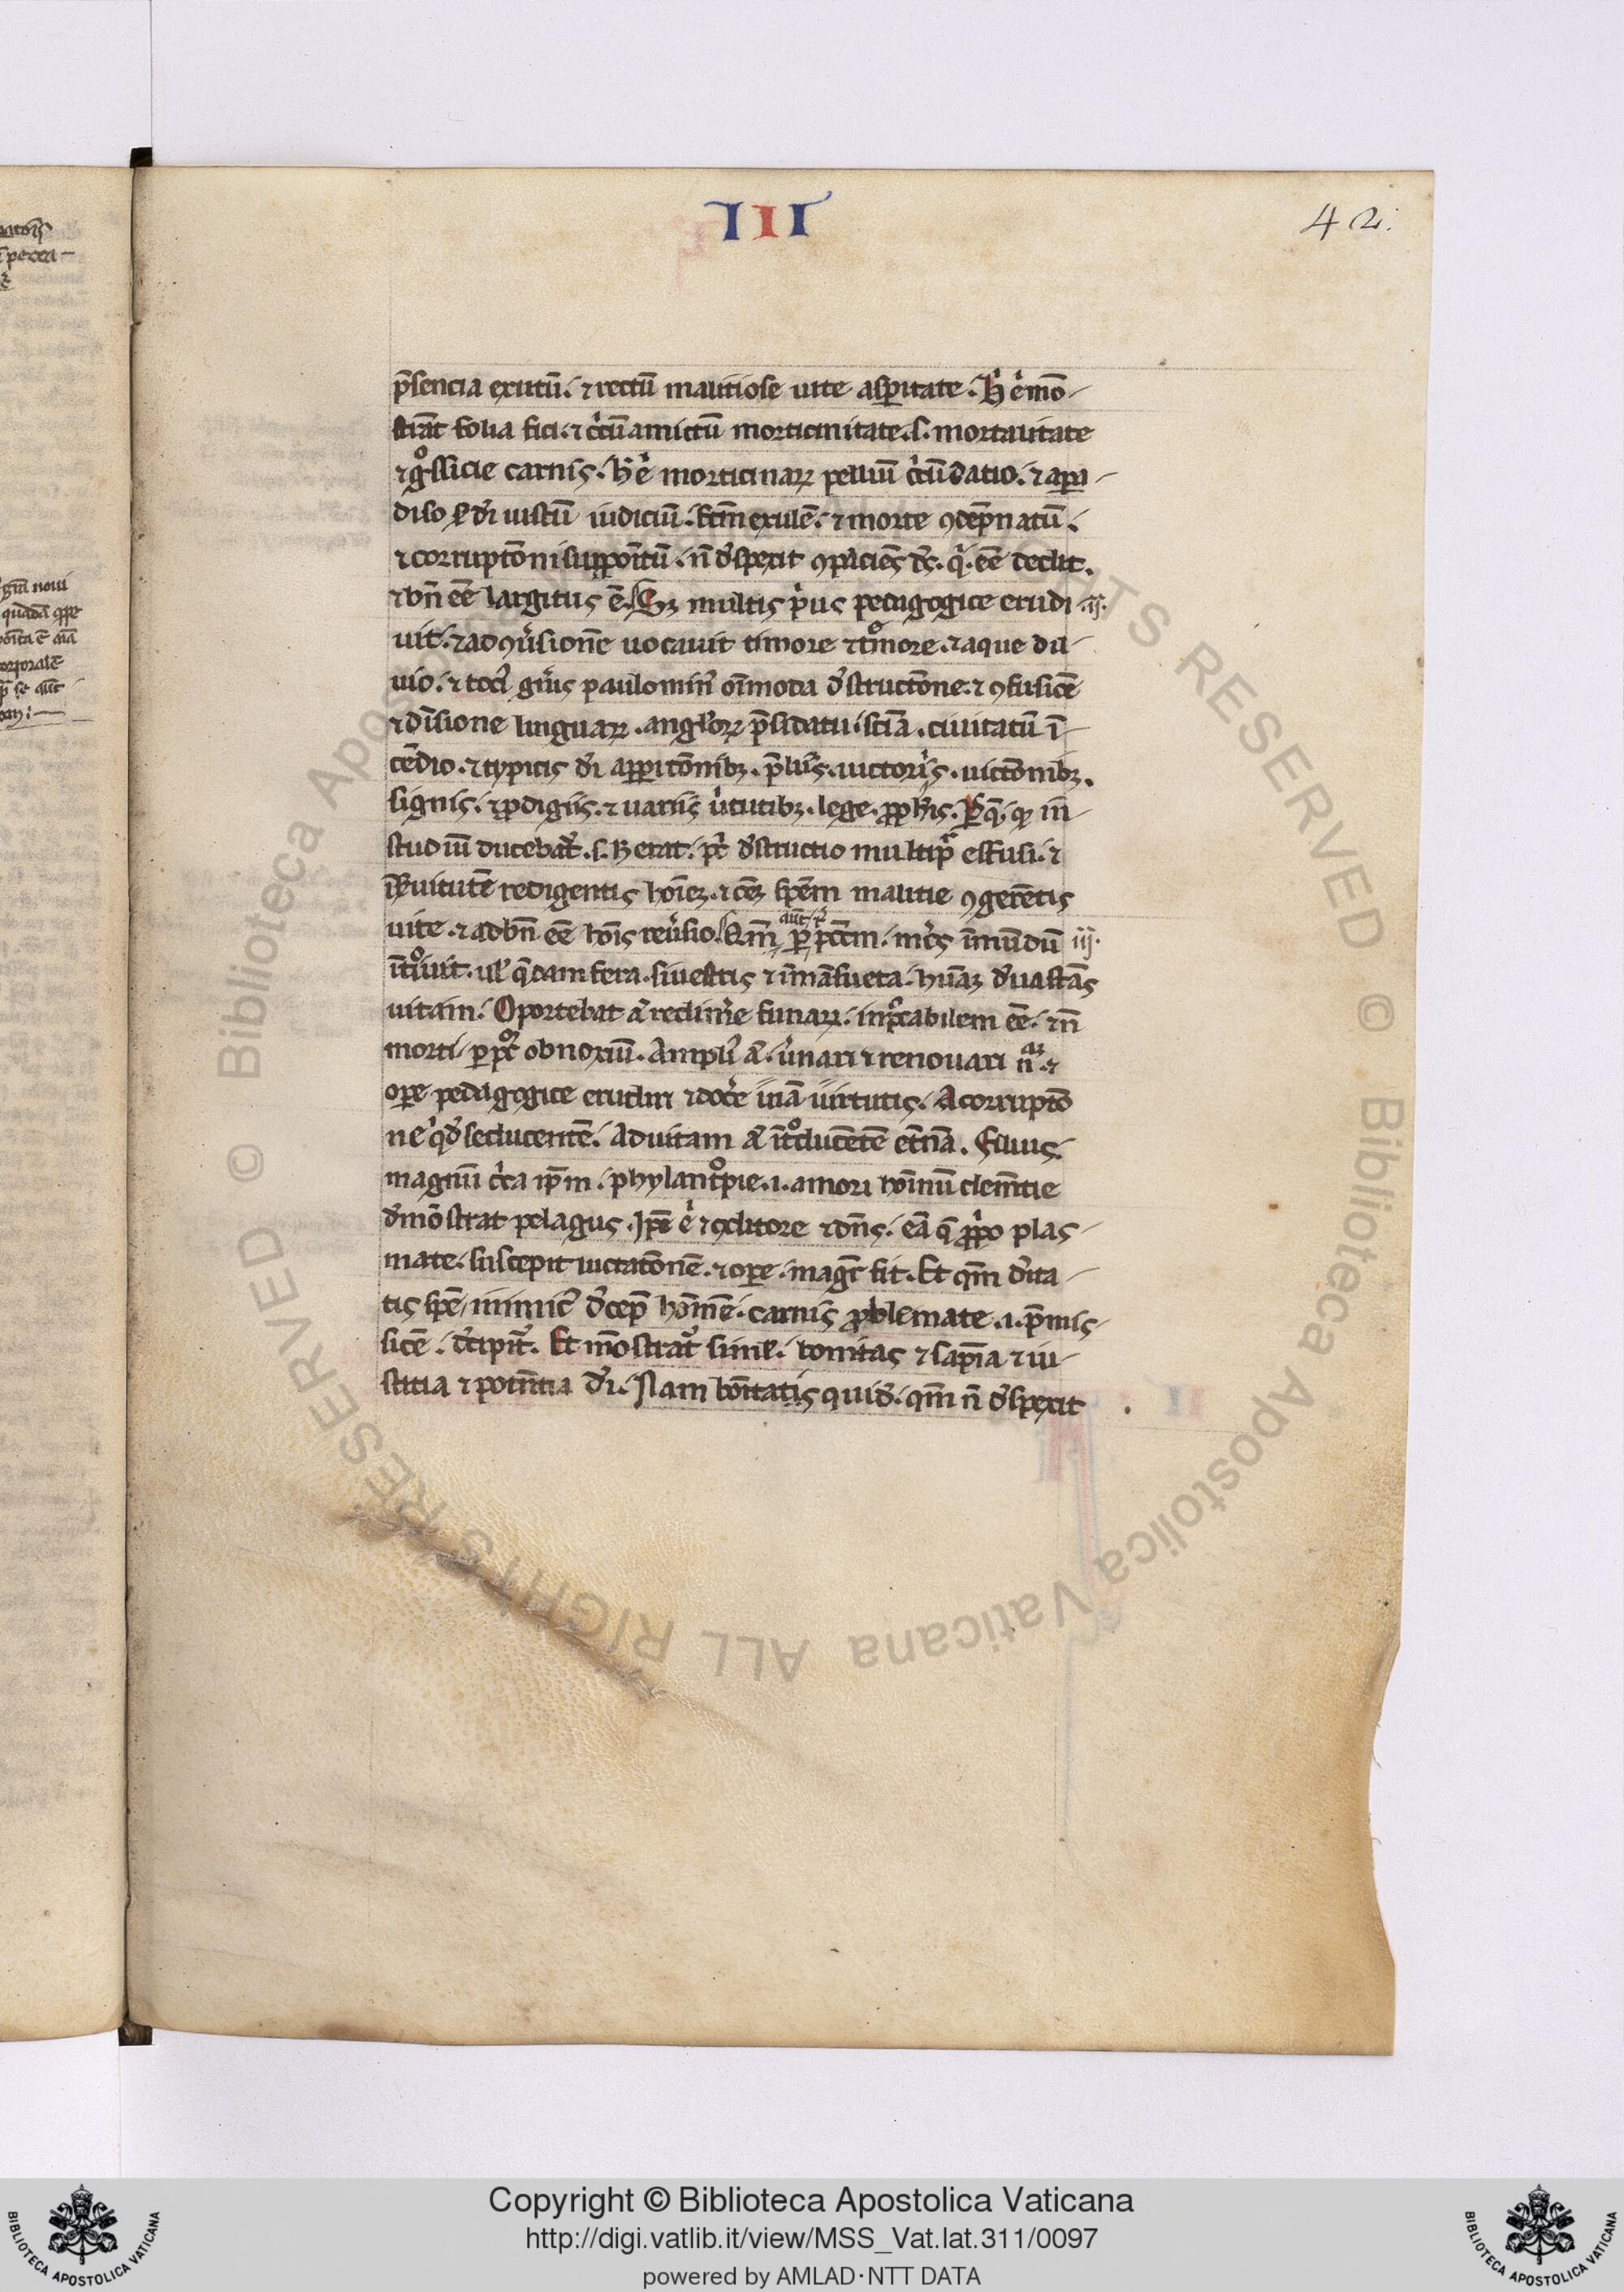 III
42.
p̄sencia exutū. ⁊ rectū malitiose uite asp̱itate. h̓ ē mō
strāt folia fici. ⁊ c̓cūamictū morticinitate .s. mortalitate
⁊ g̊ssicie carnis. h̓ ē morticinaꝝ pelliū c̓cūdatio. ⁊ a para
diso ẜ di̓ iustū iudiciū. fc̄m exulē. ⁊ morte ꝯdēp̄natū.
⁊ corruptōni suppoītū. n̄ d̓spexit ꝯpaciēs ds̄. qͥ. eē dedit.
⁊ bn̄ eē largitus ē. Sꝫ multis p̓us pedagogice erudi ij.
uit. ⁊ ad ꝯu̓sionē uocauit timore ⁊ tͦmore. ⁊ aque dilu
uio. ⁊ toci̓ gn̓is paulomin̓ oīmoda d̓structōne. ⁊ ꝯfusiōe
⁊ diūsione linguaꝝ. angl̓oꝝ p̄sidatu .sciā. ciuitatū ī
cēdio. ⁊ typicis di̓ appitōnibꝫ. p̄liis. uictorijs. uictōnibꝫ.
signis. ⁊ ꝓdigiis. ⁊ uariis u̓tutibꝫ. lege. ꝓph̓is. P̱ q̄. qꝫ in
studiū ducebat᷑ .s. h̓ erat. pc̄i d̓structio multipͬ effusi. ⁊
ī s̓uitutē redigentis hoīeꝫ. ⁊ oēꝫ sp̄em malitie ꝯgerētis
uite. ⁊ ad bn̄ eē hoīs reu̓sio. Qm̄ aut̄ ꝑ pcc̄m. mr̄s ī mūdū iij.
ītͦiuit. ul̓ q̄dam fera. siluestris ⁊ īmāsueta. hūaꝫ d̓uastās
uitam. Oportebat aͭ redim̓e futuꝝ. inpͨcabilem eē. ⁊ n̄
morti ꝑ pͨc̄ obnoxiū. Ampli̓ aͭ. u̓nari ⁊ renouari nͣꝫ. ⁊
oꝑe pedagogice erudiri ⁊ doc̓e uiā uirtutis. A corruptō
ne qͥd̓ seducentē. ad uitam aͭ ītͦducētē et̓nā. Filius.
magnū c̓ca ip̄m. phylantͦpie .i. amori hoīnū clemētie
d̓mōstrat pelagus. Ip̄e ē ⁊ ꝯditore ⁊ dn̄s. eā q̄ ꝓ pͥo plas
mate. suscepit luctatōnē. ⁊ oꝑe. magr̄ fit. Et qm̄ d̓ita
tis spē inimic̓ d̓cep̄ hoīnē. carnis ꝓblemate .i. p̄mis
siōe. d̓cipit᷑. Et mōstrat᷑ siml̓. bonitas ⁊ sapīa ⁊ iu
stitia ⁊ potn̄tia di̓. Nam bōitatis quid̓. qm̄ n̄ d̓spexit
Copyright © Biblioteca Apostolica Vaticana
http://digi.vatlib.it/view/MSS_Vat.lat.311/0097
powered by AMLAD·NTT DATA